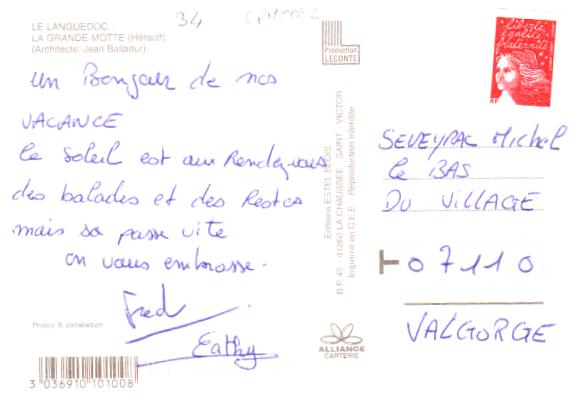 LE LANGUEDOC...
LA GRANDE-MOTTE (Hérault)
(Architecte: Jean Balladur)
34
un Bonjour de nos
VACANCE
le soleil est aux Rendez-vous
des balades et des Restos
mais sa passe vite
on vous embrasse.
Fred
Cathy
3 036910 101008
Production
LECONTE
Editions ESTEL BLOIS
B.P. 45 - 41260 LA CHAUSSEE - SAINT - VICTOR
Imprimé en C.E.E. - Reproduction interdite
ALLIANCE
CARTERIE
liberté
égalité
fraternité
SEVEYRAC Michel
le BAS
DU VILLAGE
07110
VALGORGE